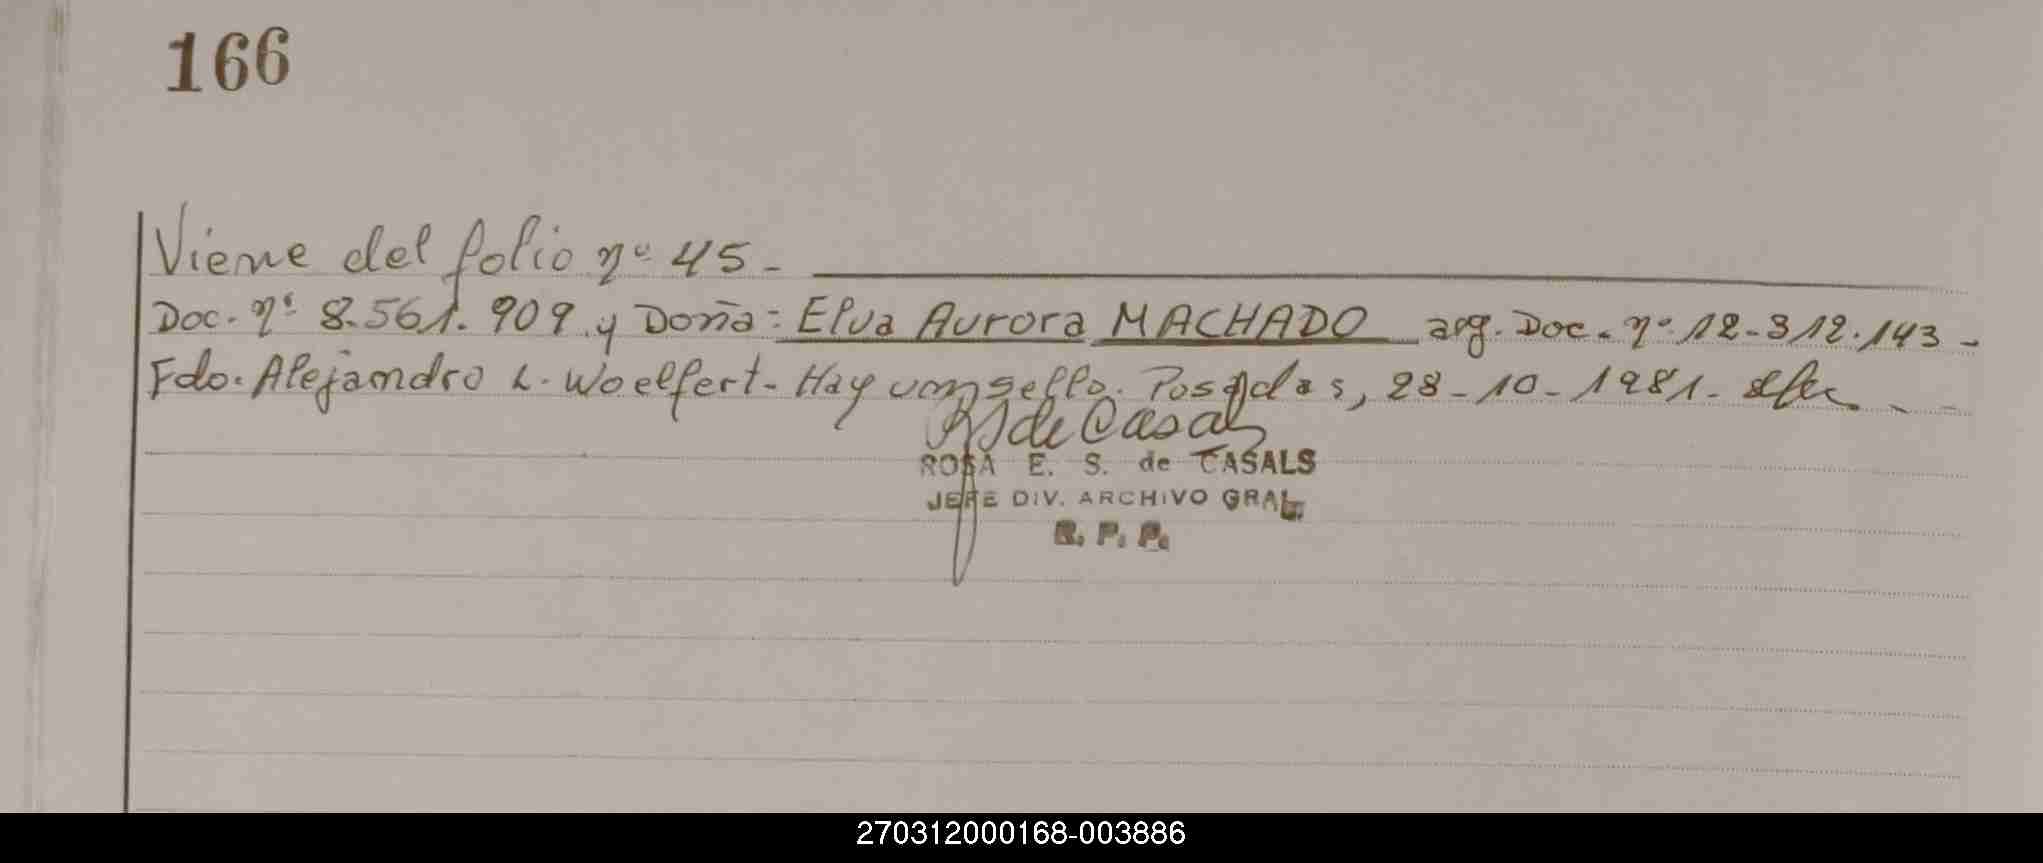 166
Viene del folio nº 45 -
Doc. nº 8.561.909 y Doña: Elva Aurora MACHADO arg. Doc. nº 12-312.143 -
Fdo. Alejandro L. Woelfert - Hay un sello. Posadas, 28-10-1981.
de Casals
ROSA E. S. de CASALS
JEFE DIV. ARCHIVO GRAL.
R. P. P.
270312000168-003886